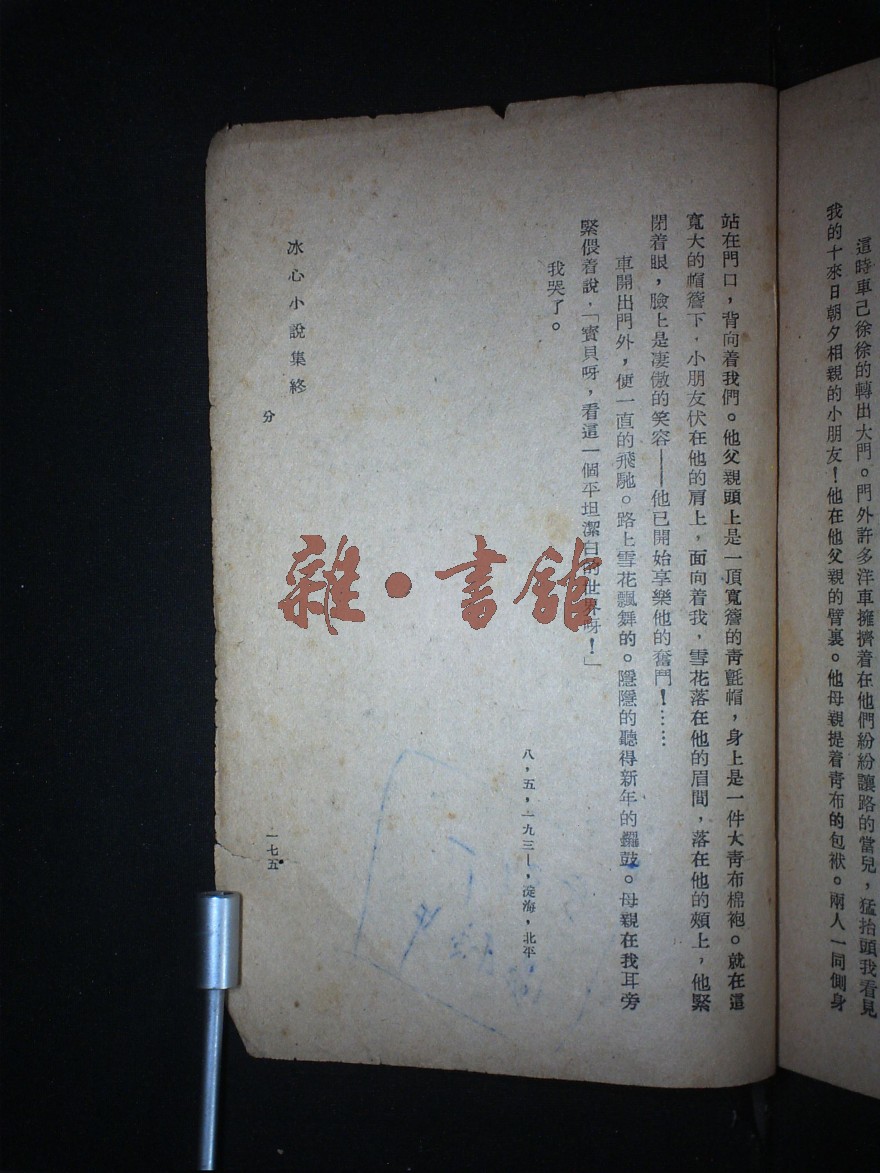 這時車己徐徐的轉出大門。門外許多洋車擁擠着在他們紛紛讓路的當兒，猛抬頭我看見
我的十來日朝夕相親的小朋友！他在他父親的臂裏。他母親提着靑布的包袱。兩人一同側身
站在門口，背向着我們。他父親頭上是一頂寬簷的靑氈帽，身上是一件大靑布棉袍。就在這
寬大的帽簷下，小朋友伏在他的肩上，面向着我，雪花落在他的眉間，落在他的頰上，他緊
閉着眼，臉上是凄傲的笑容——他已開始享樂他的奮鬥！……
車開出門外，便一直的飛馳。路上雪花飄舞的。隱隱的聽得新年的鑼鼓。母親在我耳旁
緊偎着說，「寶貝呀，看這一個平坦潔白的世界呀！」
我哭了。
八，五，一九三一，淀海，北平
冰心小說集終
分
一七五
雜·書館